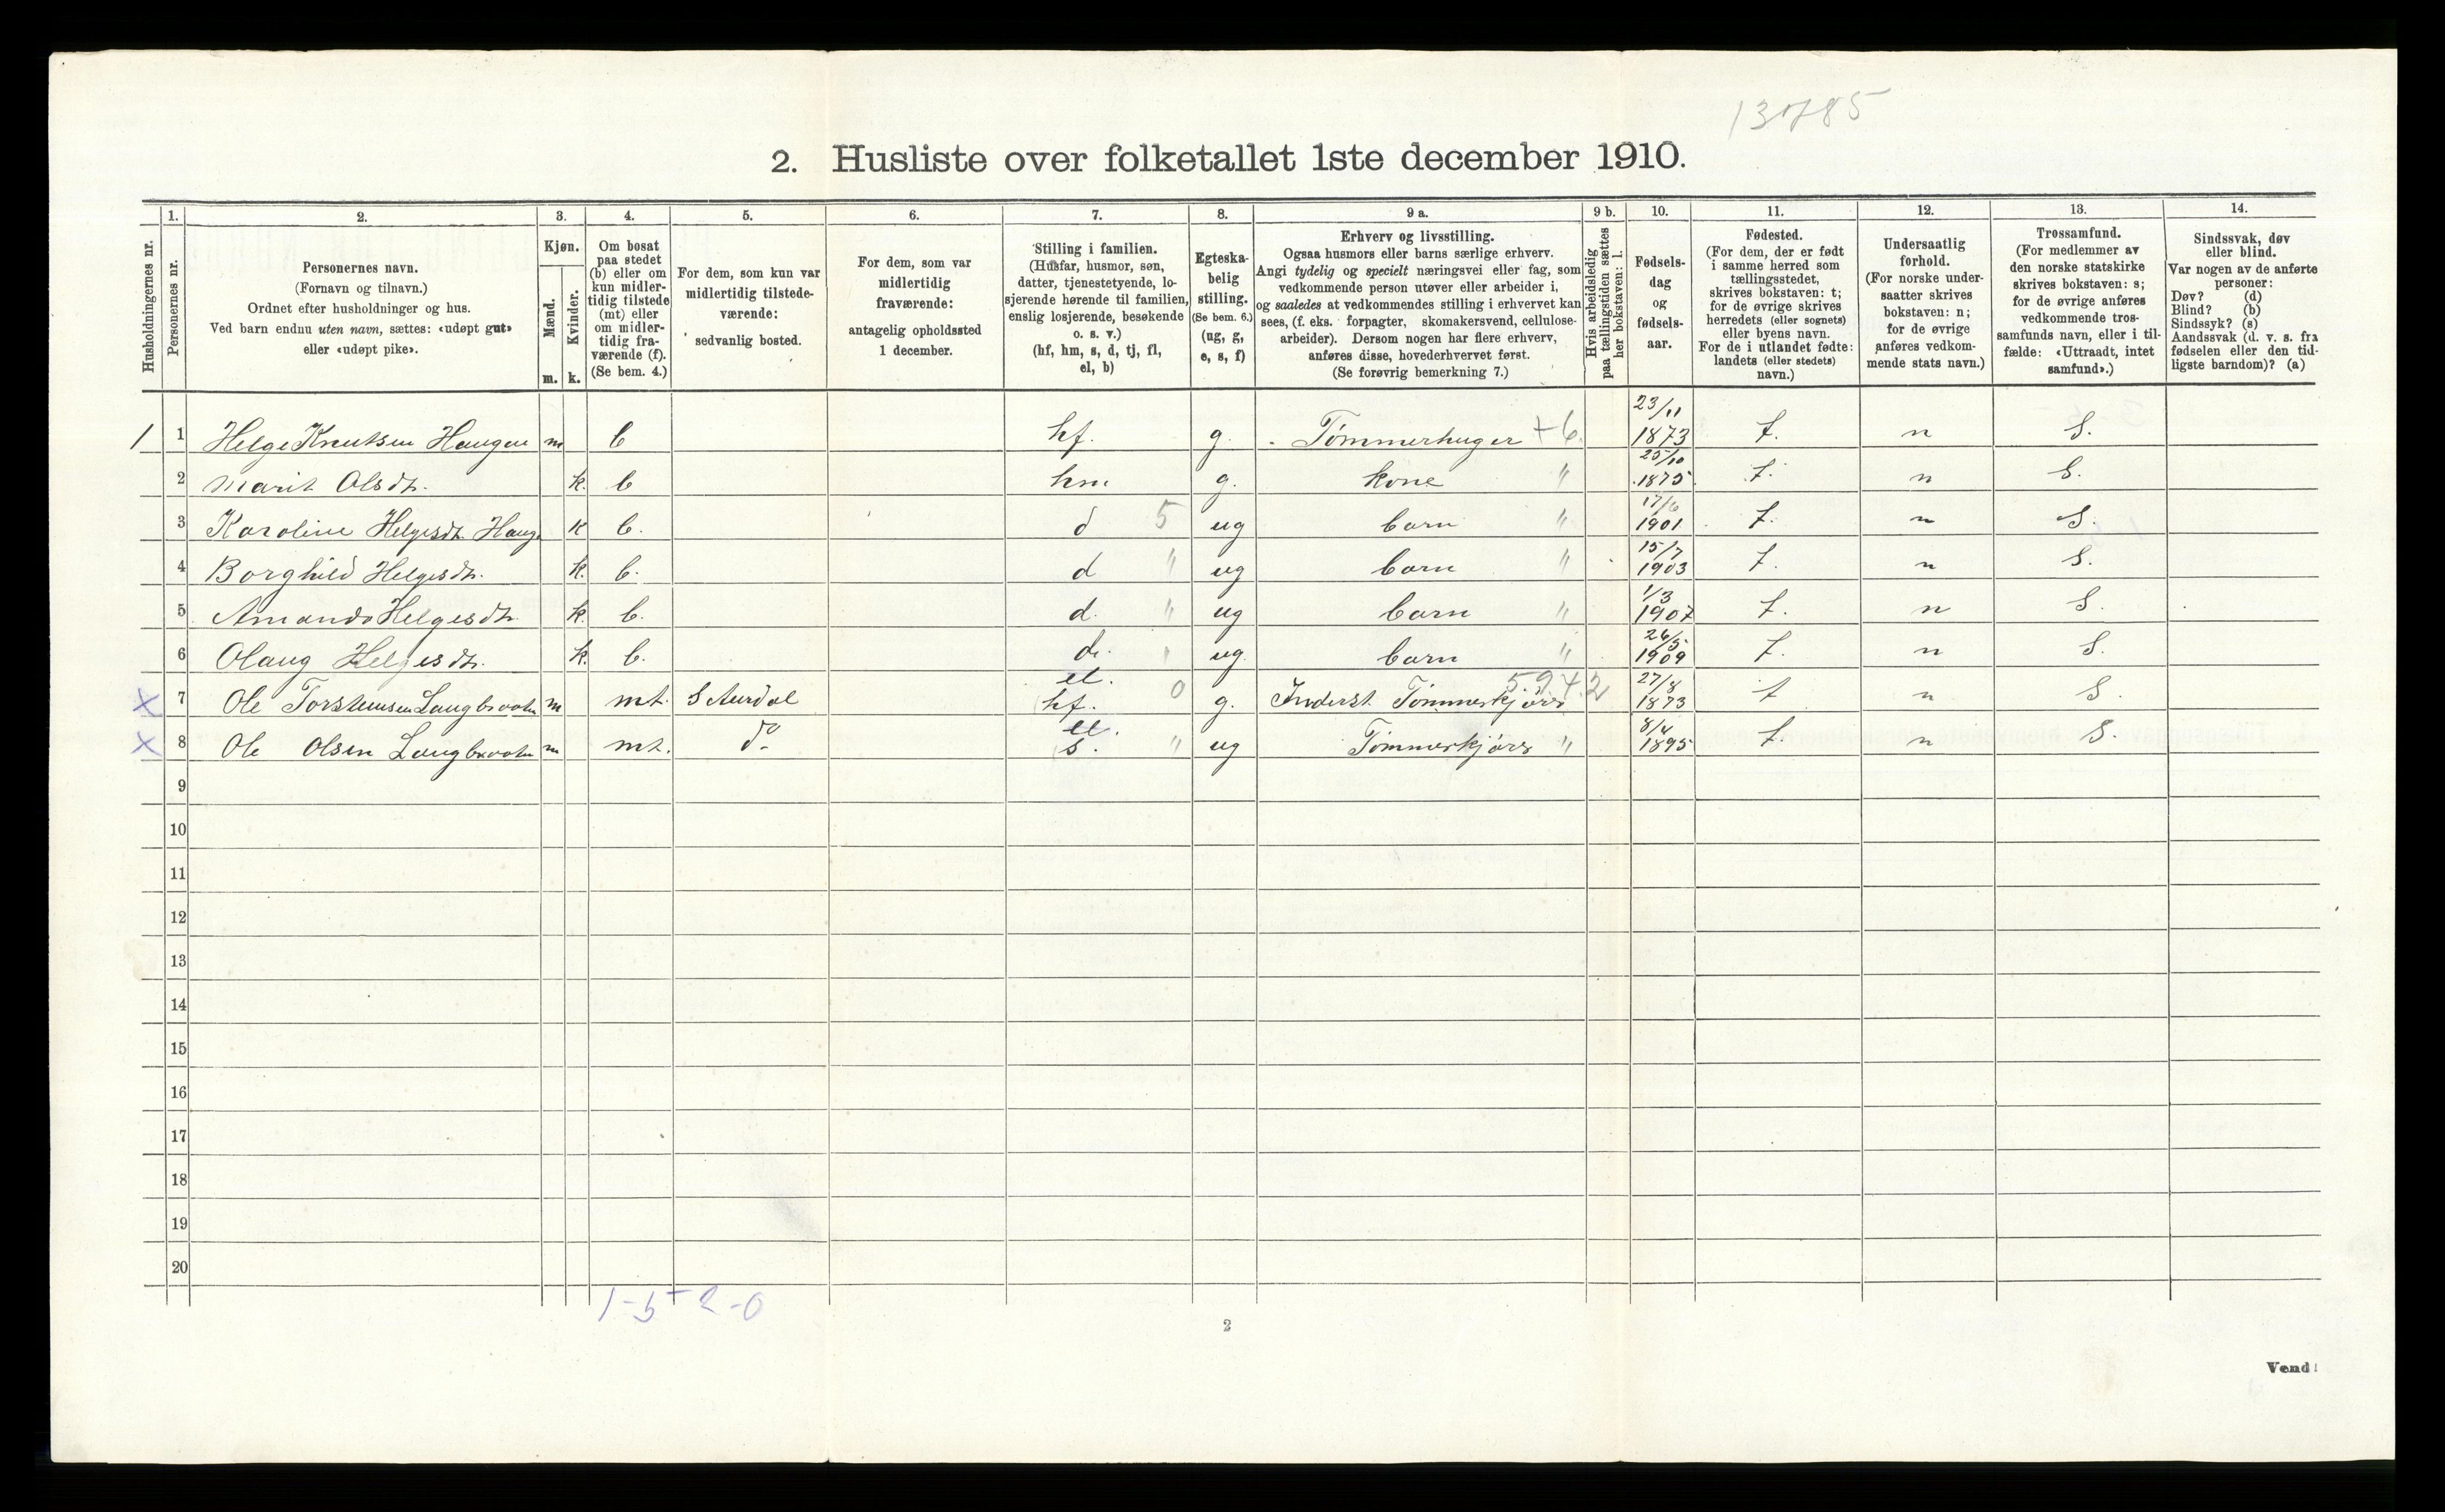 13785
2. Husliste over folketallet 1ste december 1910.
1. 2. 3. 4. 5. 6. 7. 8. 9 a. 9 b. 10. 11. 12. 13. 14.
Husholdningernes nr.
Personernes nr.
Personernes navn.
(Fornavn og tilnavn.)
Ordnet efter husholdninger og hus.
Ved barn endnu uten navn, sættes: «udøpt gut»
eller «udøpt pike».
Kjøn.
Mænd.
Kvinder.
m. k.
Om bosat
paa stedet
(b) eller om
kun midler-
tidig tilstede
(mt) eller
om midler-
tidig fra-
værende (f).
(Se bem. 4.)
For dem, som kun var
midlertidig tilstede-
værende:
sedvanlig bosted.
For dem, som var
midlertidig
fraværende:
antagelig opholdssted
1 december.
Stilling i familien.
(Husfar, husmor, søn,
datter, tjenestetyende, lo-
sjerende hørende til familien,
enslig losjerende, besøkende
o. s. v.)
(hf, hm, s, d, tj, fl,
el, b)
Egteska-
belig
stilling.
(Se bem. 6.)
(ug, g,
e, s, f)
Erhverv og livsstilling.
Ogsaa husmors eller barns særlige erhverv.
Angi tydelig og specielt næringsvei eller fag, som
vedkommende person utøver eller arbeider i,
og saaledes at vedkommendes stilling i erhvervet kan
sees, (f. eks. forpagter, skomakersvend, cellulose-
arbeider). Dersom nogen har flere erhverv,
anføres disse, hovederhvervet først.
(Se forøvrig bemerkning 7.)
Hvis arbeidsledig
paa tællingstiden sættes
her bokstaven: l.
Fødsels-
dag
og
fødsels-
aar.
Fødested.
(For dem, der er født
i samme herred som
tællingsstedet,
skrives bokstaven: t;
for de øvrige skrives
herredets (eller sognets)
eller byens navn.
For de i utlandet fødte:
landets (eller stedets)
navn.)
Undersaatlig
forhold.
(For norske under-
saatter skrives
bokstaven: n;
for de øvrige
anføres vedkom-
mende stats navn.)
Trossamfund.
(For medlemmer av
den norske statskirke
skrives bokstaven: s;
for de øvrige anføres
vedkommende tros-
samfunds navn, eller i til-
fælde: «Uttraadt, intet
samfund».)
Sindssvak, døv
eller blind.
Var nogen av de anførte
personer:
Døv? (d)
Blind? (b)
Sindssyk? (s)
Aandssvak (d. v. s. fra
fødselen eller den tid-
ligste barndom)? (a)
1 1 Helge Knutsen Haugen m b hf. g. Tømmerhuger +6. 23/11 1873 t. n S.
2 Marit Olsdt. k. b hm g. kone " 25/10 1875 t. n S.
3 Karoline Helgesdt. Haug k b. d 5 ug barn " 17/6 1901 t. n S.
4 Borghild Helgesdt. k. b. d " ug barn " 15/7 1903 t. n S.
5 Amanda Helgesdt. k. b. d. " ug barn " 1/3 1907 t. n S.
6 Olaug Helgesdt. k. b. d. " ug. barn " 26/5 1909 t. n S.
X 7 Ole Torstensen Langbraatn m mt. S Aurdal el. hf. 0 g. Inderst Tømmerkjører 594.2 27/8 1873 t n S.
X 8 Ole Olsen Langbraatn m mt. do el. s. " ug Tømmerkjører " 8/4 1895 t. n S.
9
10
11
12
13
14
15
16
17
18
19
20
1-5-2-0
2
Vend!